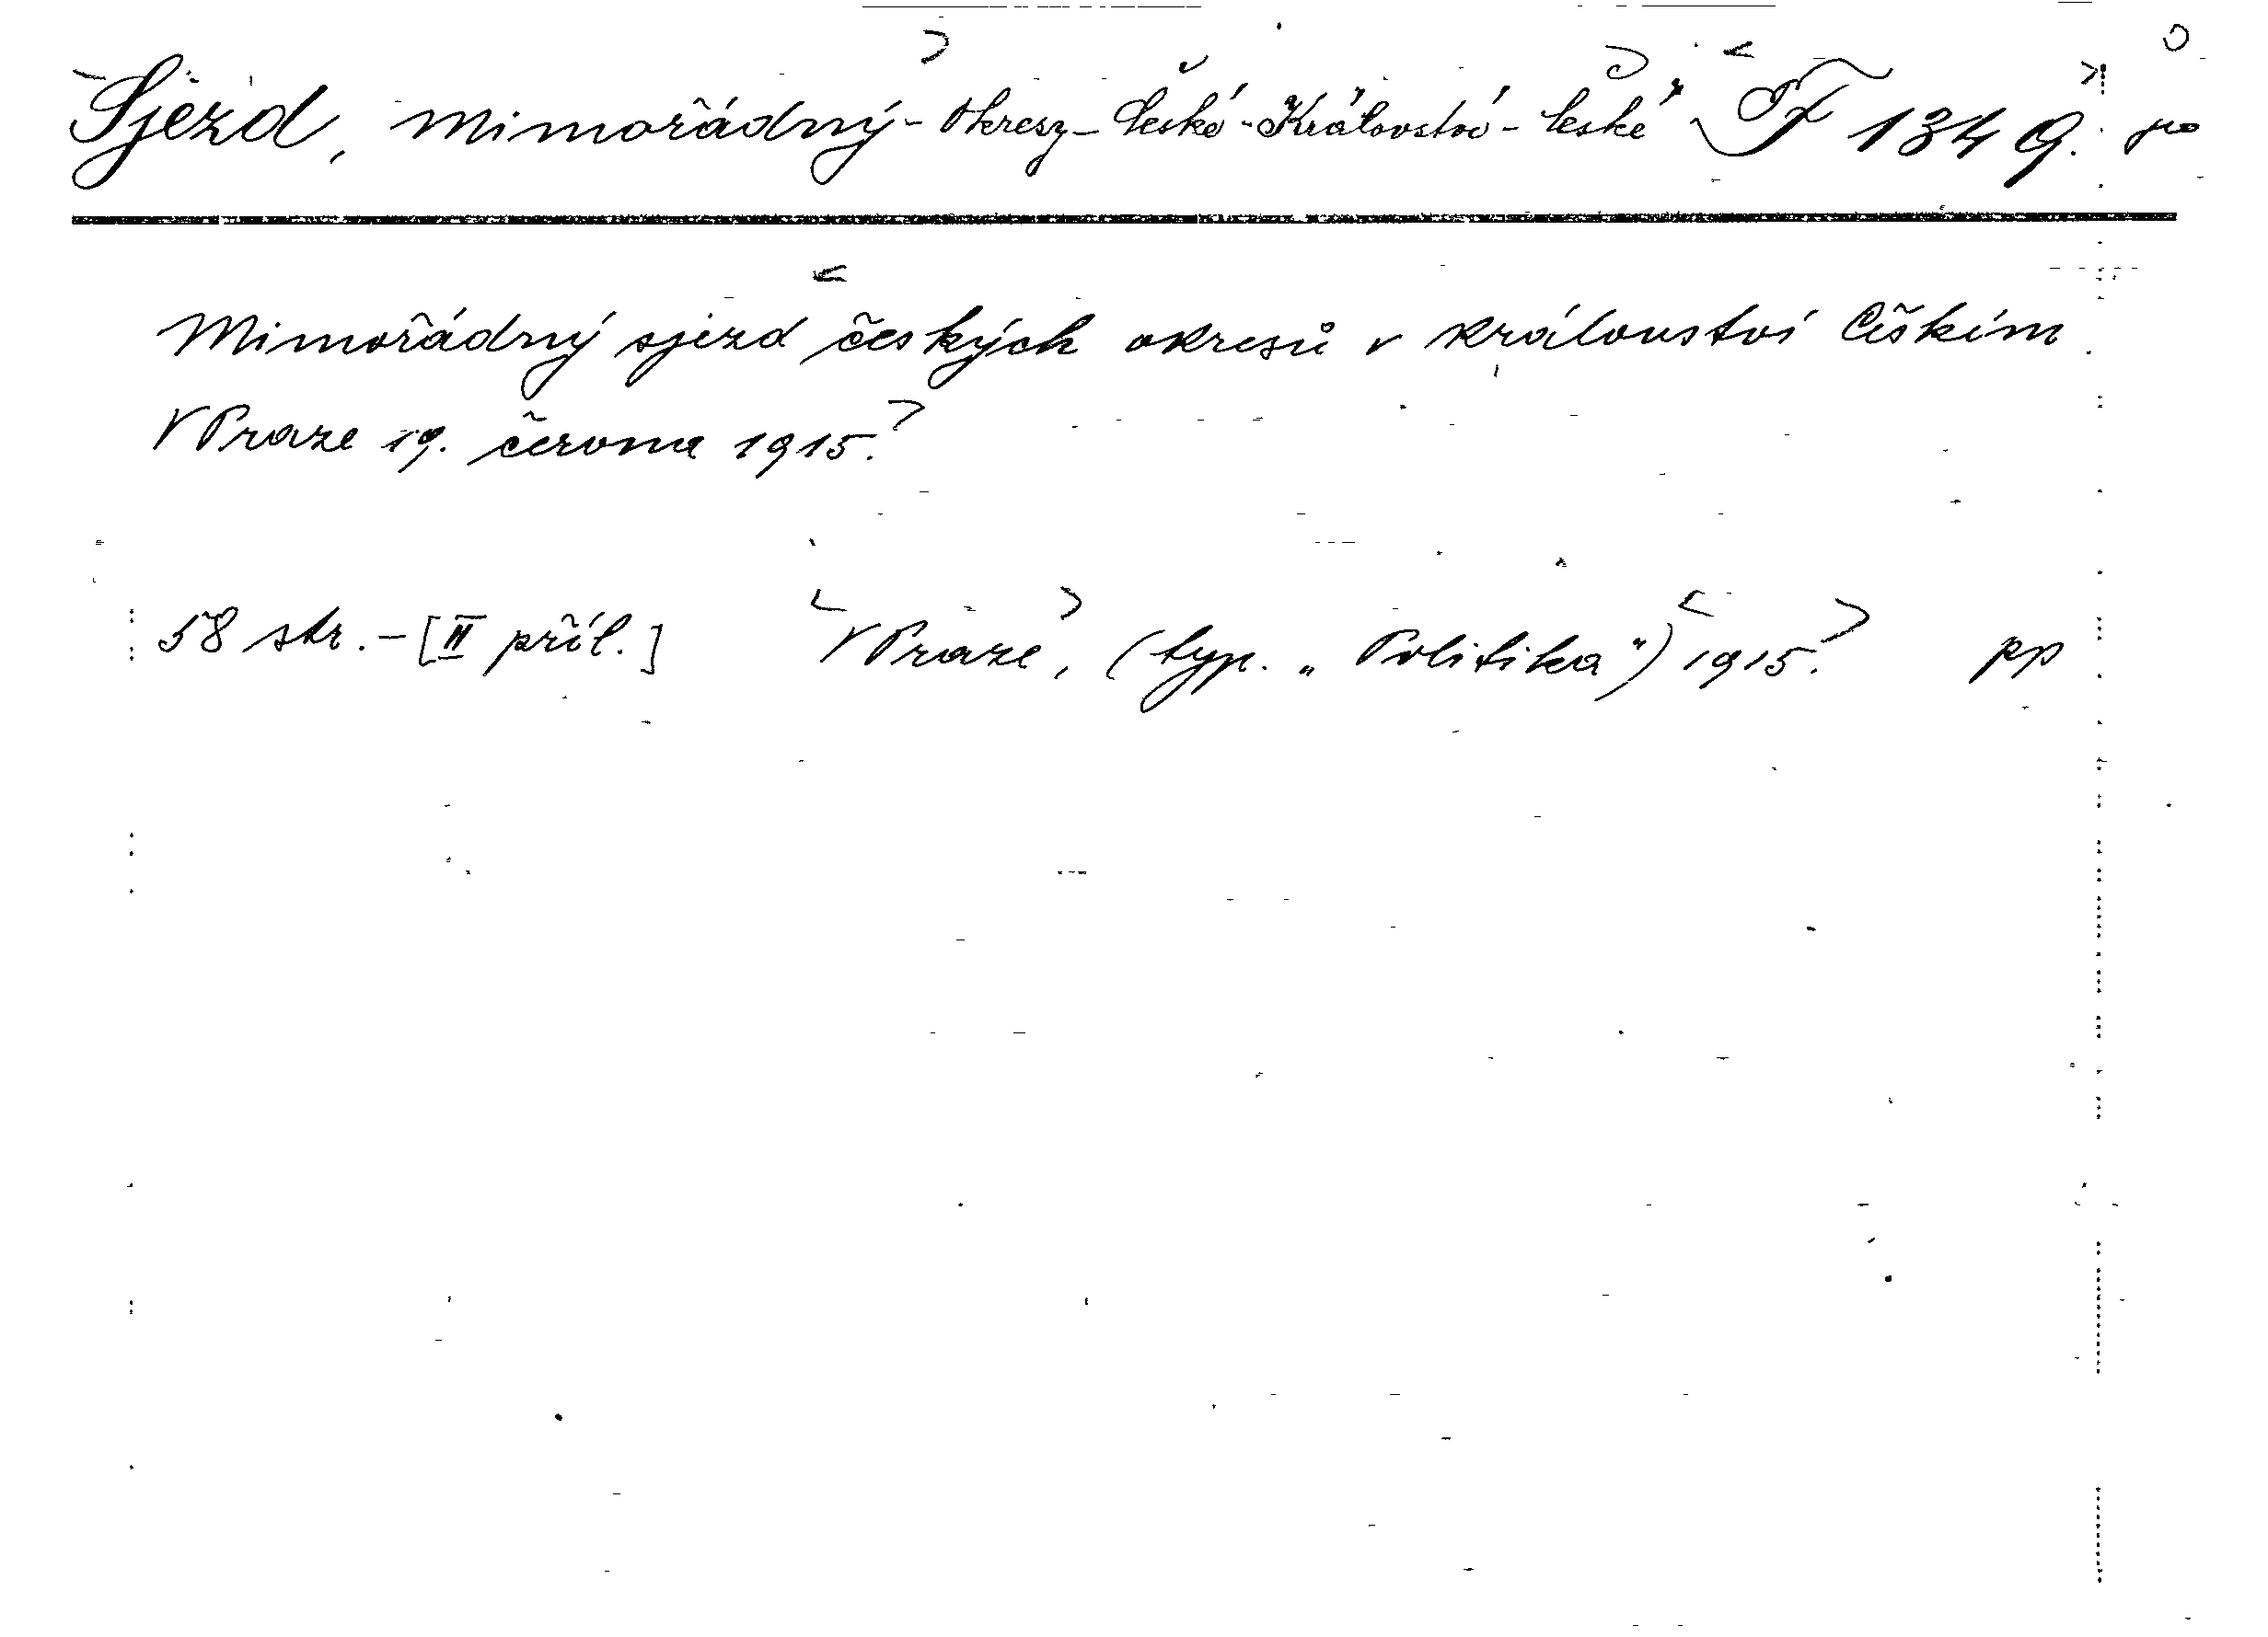 Sjezd, mimořádný - Okresy - České - Království - České F 1349.
Mimořádný sjezd českých okresů v království Českém.
V Praze 19. června 1915.
58 str. - [II příl.] V Praze, (typ. „Politika") 1915. pp